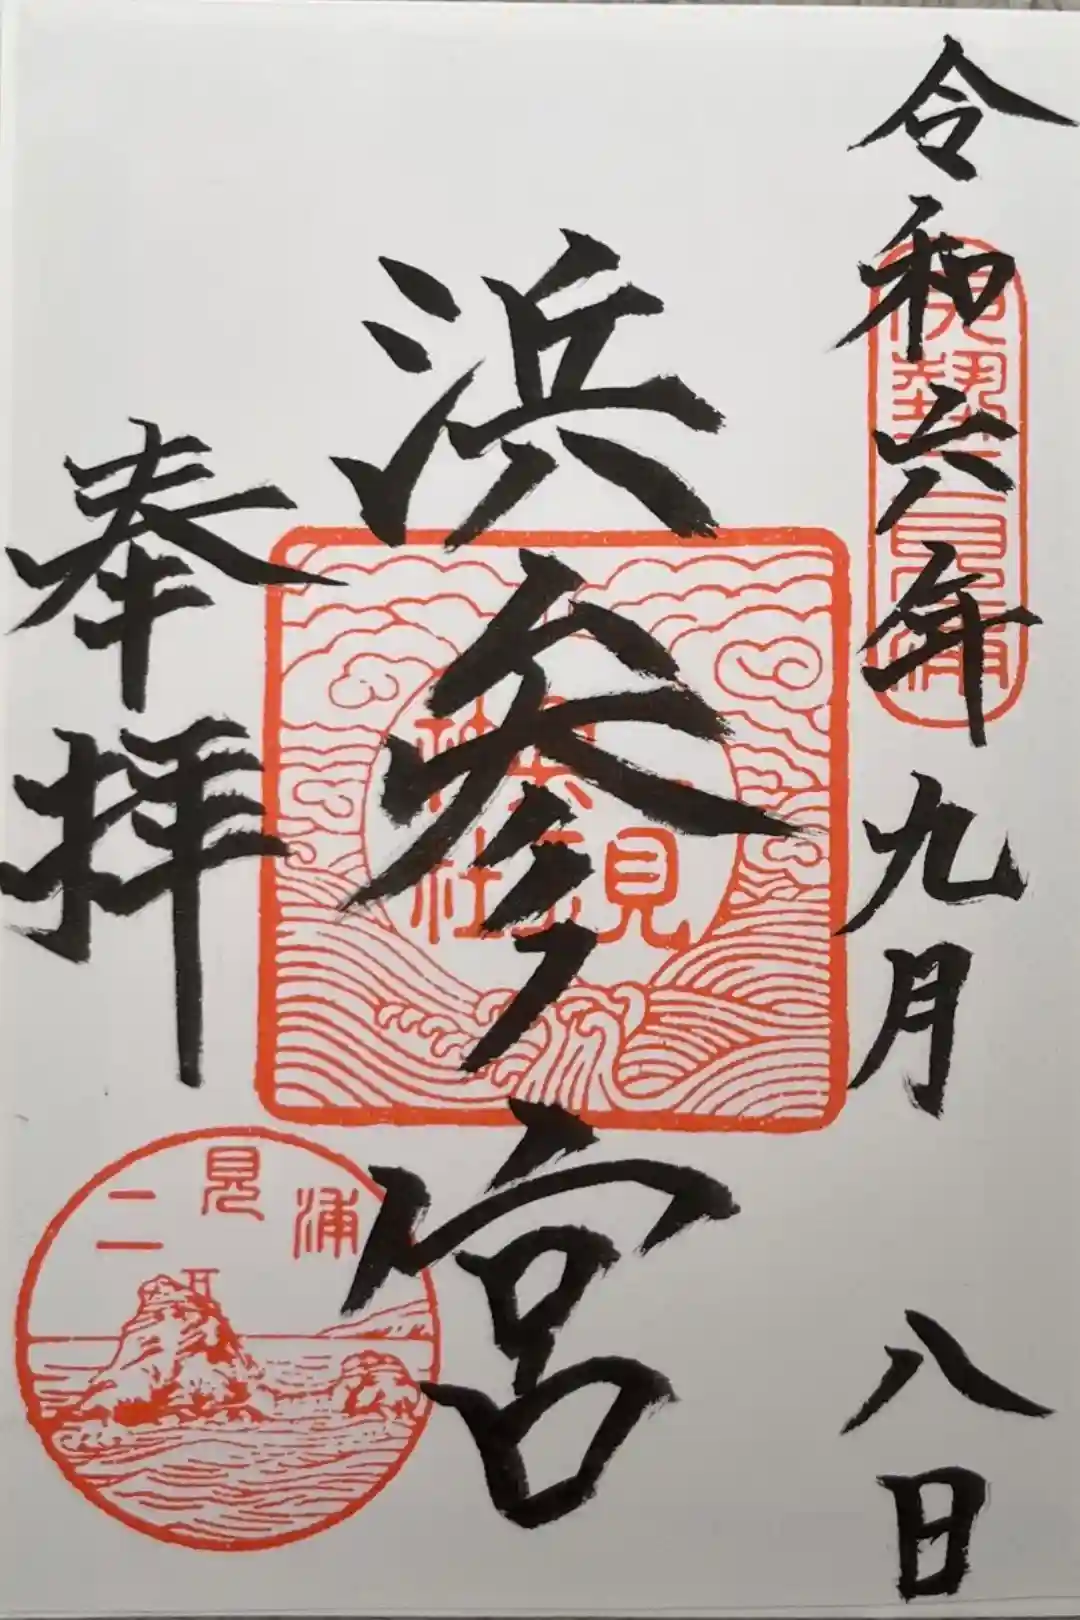 令和六年九月八日
伊勢二見浦
浜参宮
奉拝
二見浦